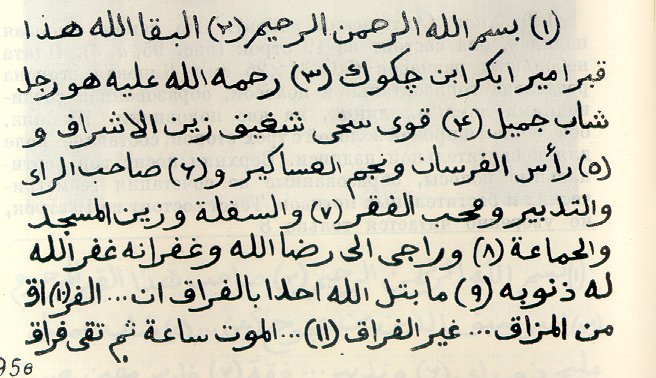 (١) بسم الله الرحمن الرحيم (٢) البقا الله هذا
قبر امير ابكر ابن چكوك (٣) رحمه الله عليه هو رجل
شاب جميل (۴) قوى سخى شفيق زين الاشراف و
(٥) رأس الفرسان ونجم العساكير و (٦) صاحب الراء
والتدبير ومحب الفقر (٧) والسفلة وزين المسجد
والحماعة (٨) وراجى الى رضا الله وغفرانه غفر الله
له ذنوبه (٩) ما بتل الله احدا بالفراق ات ... الفر(١٠)اق
من المزاق ... غير الفراق (١١) ... الموت ساعة ثم تقى فراق
95в